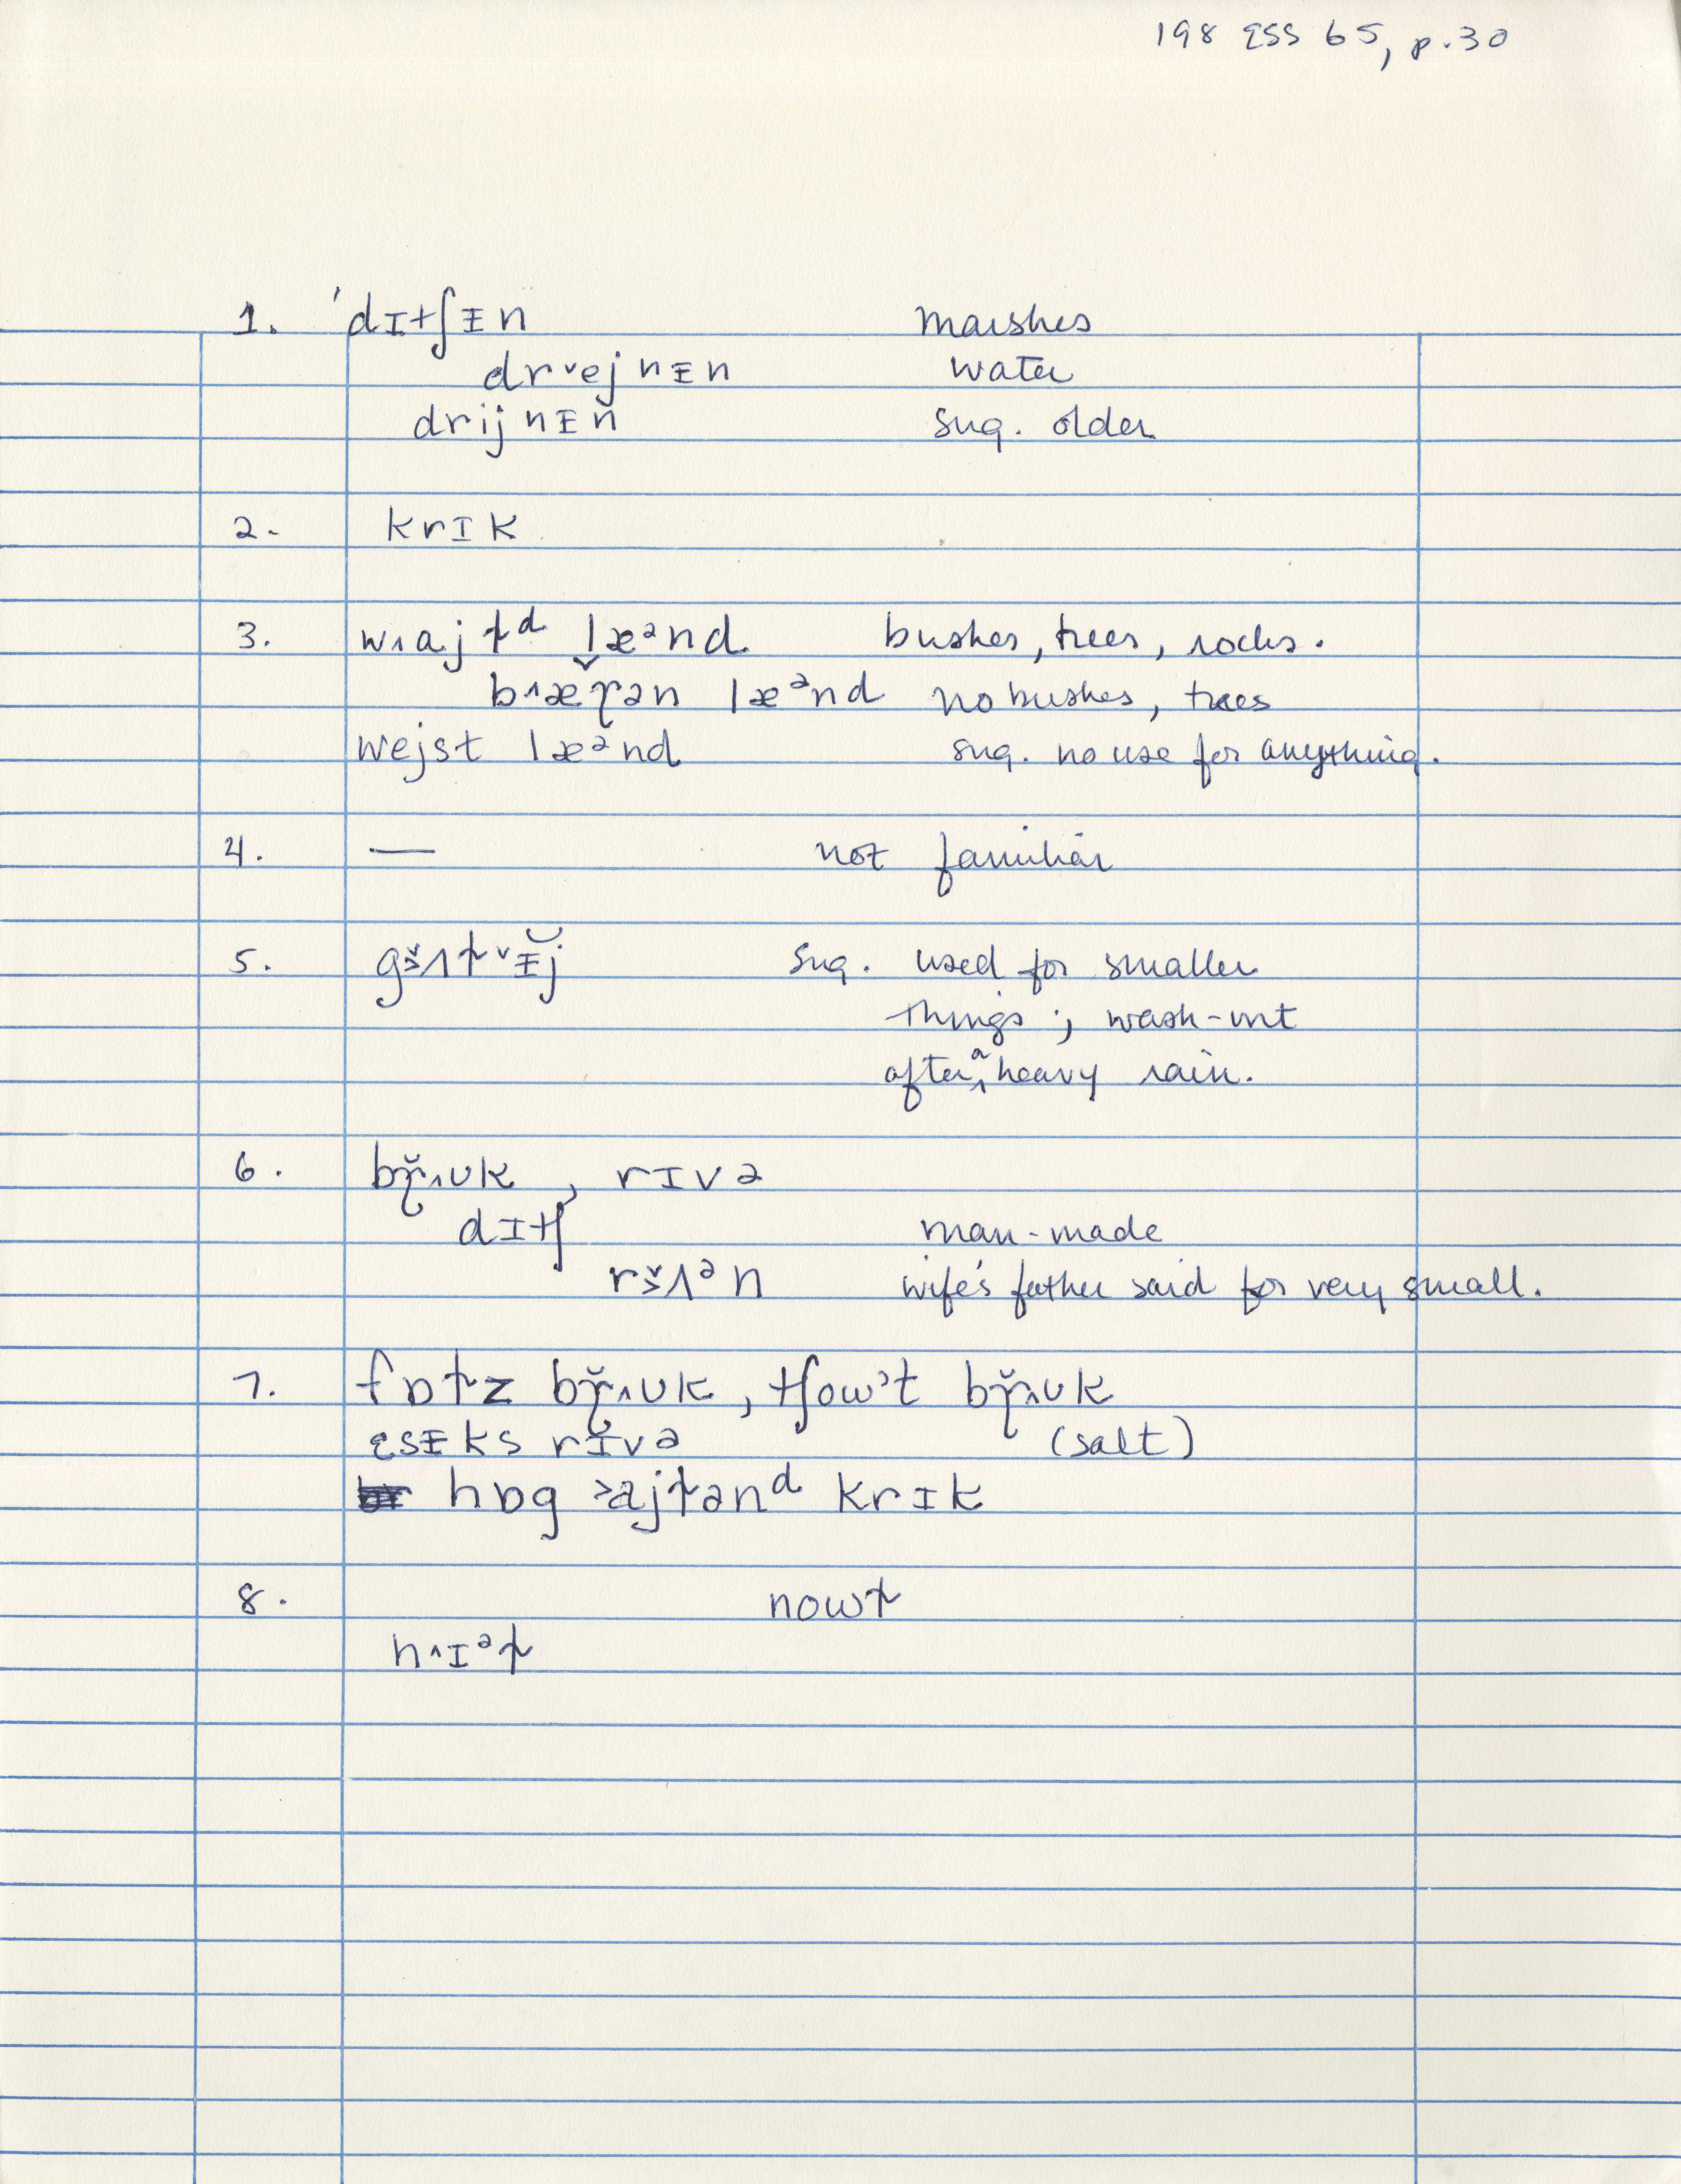 198 ESS 65, p.30
1. 'dɪtʃᵻn marshes
drˇejnᵻn water
drijnᵻn sug. older
2. krɪk
3. w˄ajɫᵈ læᵊnd bushes, trees, rocks.
læᵊnd no bushes, trees
wejst læᵊnd sug. no use for anything.
4. — not familiar
5. sug. used for smaller
things; wash-out
after a heavy rain.
6. , rɪvə
dɪtʃ man-made
wife's father said for very small.
7. 
ɛsᵻks rɪvə (salt)
hɒg ˃ajɫənᵈ krɪk
8. nowɫ
h˄ɪᵊɫ